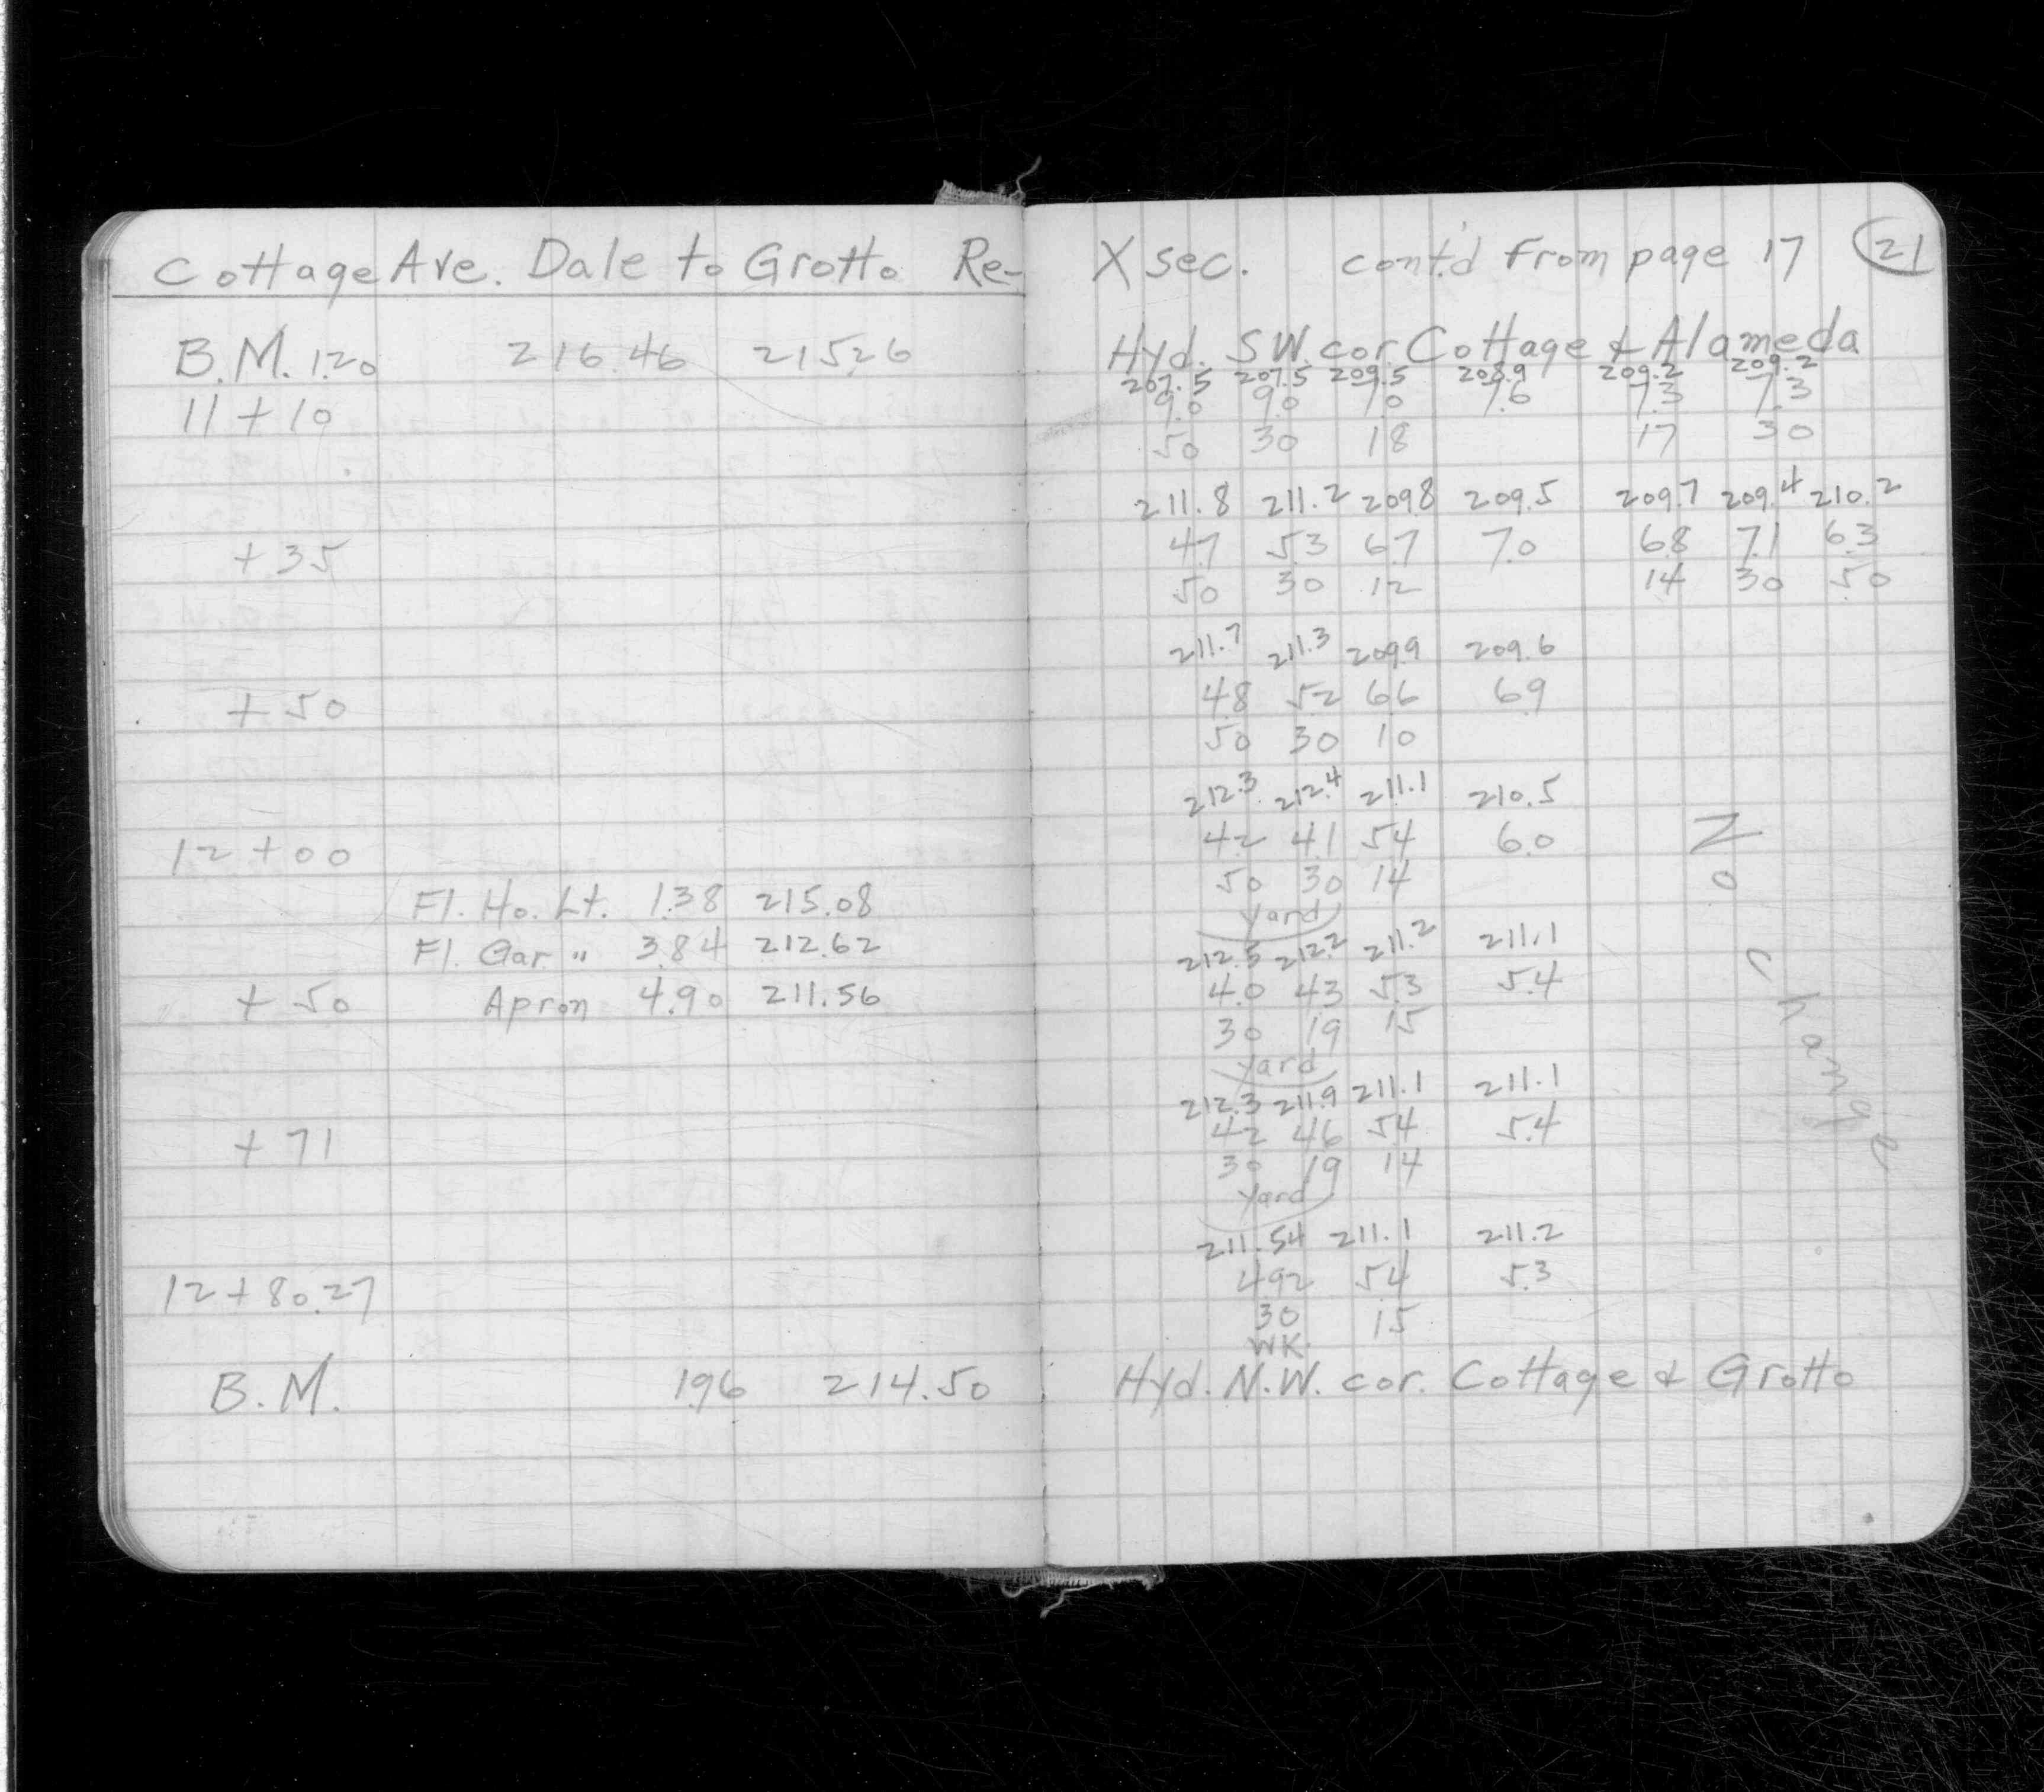 Cottage Ave. Dale to Grotto Re-
B.M. 1.20 216.46 215.26
11+10
+35
+50
12+00
Fl. Ho. Lt. 1.38 215.08
Fl. Gar. " 3.84 212.62
+50 Apron 4.90 211.56
+71
12+80.27
B.M. 1.96 214.50
X sec. cont'd From page 17 21
Hyd. S.W. cor. Cottage & Alameda
207.5 207.5 209.5 208.9 209.2 209.2
9.0 9.0 7.0 7.6 7.3 7.3
50 30 18 17 30
211.8 211.2 209.8 209.5 209.7 209.4 210.2
4.7 5.3 6.7 7.0 6.8 7.1 6.3
50 30 12 14 30 50
211.7 211.3 209.9 209.6
4.8 5.2 6.6 6.9
50 30 10
212.3 212.4 211.1 210.5
4.2 4.1 5.4 6.0
50 30 14
yard
212.5 212.2 211.2 211.1
4.0 4.3 5.3 5.4
30 19 15
yard
212.3 211.9 211.1 211.1
4.2 4.6 5.4 5.4
30 19 14
yard
211.54 211.1 211.2
4.92 5.4 5.3
30 15
WK.
No Change
Hyd. N.W. cor. Cottage & Grotto